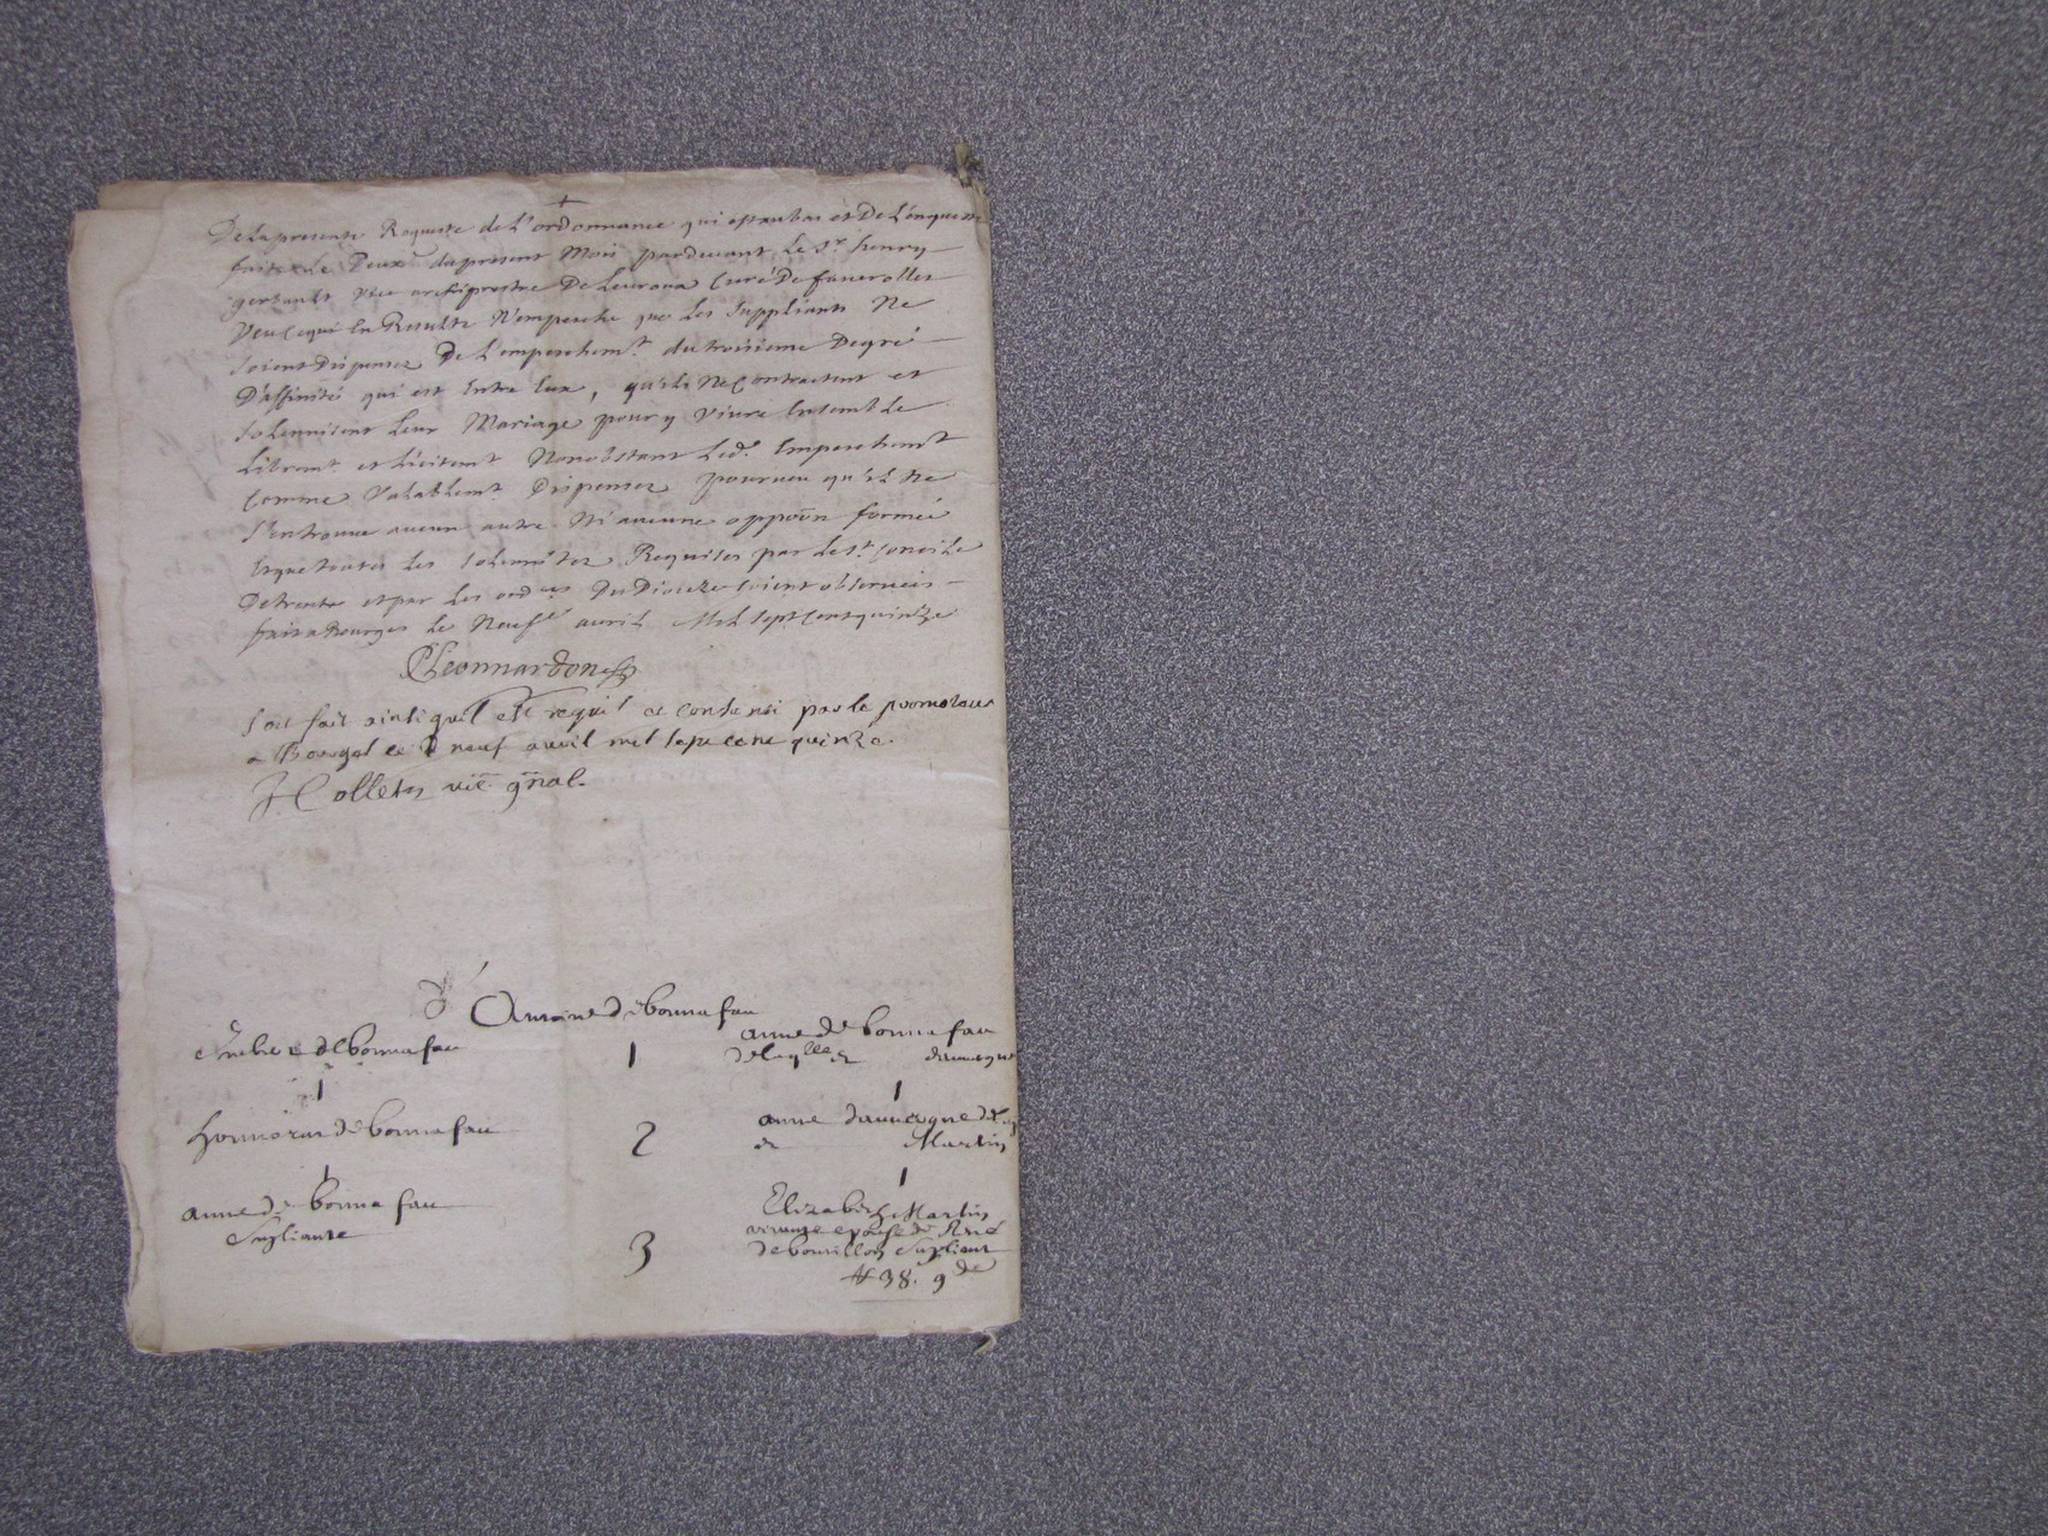 +
De la presente Requeste de l'ordonnance qui est au bas et De l'enqueste
faite le Deux.e du present Mois pardevant Le Sr. henry
vice archiprestre De Leuroux Curé De faverolles
Veu ce qui En Resulte N'empesche que Les Suppliants Ne
soient Dispensez De L'empeschemt. du troisieme Degré
D'affinité qui est Entre Eux, qu'ils Ne Contractent et
solennisent Leur Mariage pour y Vivre Ensemble
Libremt. et Licitemt. Nonobstant Led. Empeschemt
Comme Valablemt. Dispensez pourveu qu'il Ne
s'en trouve aucun autre Ni aucune oppoõn formée
Et que toutes Les solemnitez Requises par Le St. Concile
De trente et par Les ordces Du Dioceze soient observées
fait a Bourges Le Neufe avril Mil Sept Cent quinze
Leonnardon
Soit fait ainsi quil est requis et consenti par le promoteur
a Bourges ce neuf avril mil sept cent quinze.
J Colletes vic gñal.
Antoine de bonnafau
de bonnafau 1 anne de bonnafau
de laqlle et dauuergne
1 1
Honnorat de bonnafau 2 anne dauuergne de
et Martin
1 1
anne de bonnafau Elizabeth Martin
Supliante 3 vivante epouse de René
de bouuillon Supliant
# 38. 9de